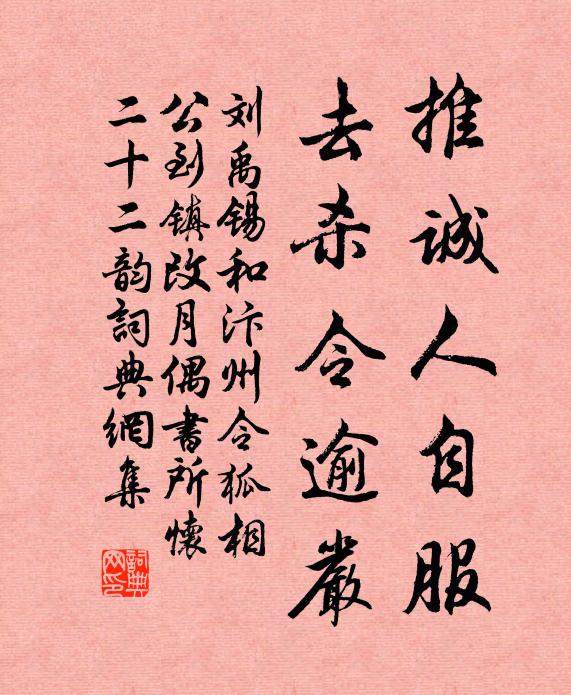 推誠人自服
去杀令逾嚴
刘禹锡和汴州令狐相
公到镇改月偶書所懷
二十二韵詞典網集
詞典网印